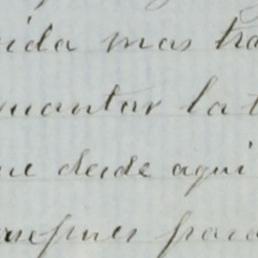 vida mas tra
mantar la t
ue desde aqui
despues para